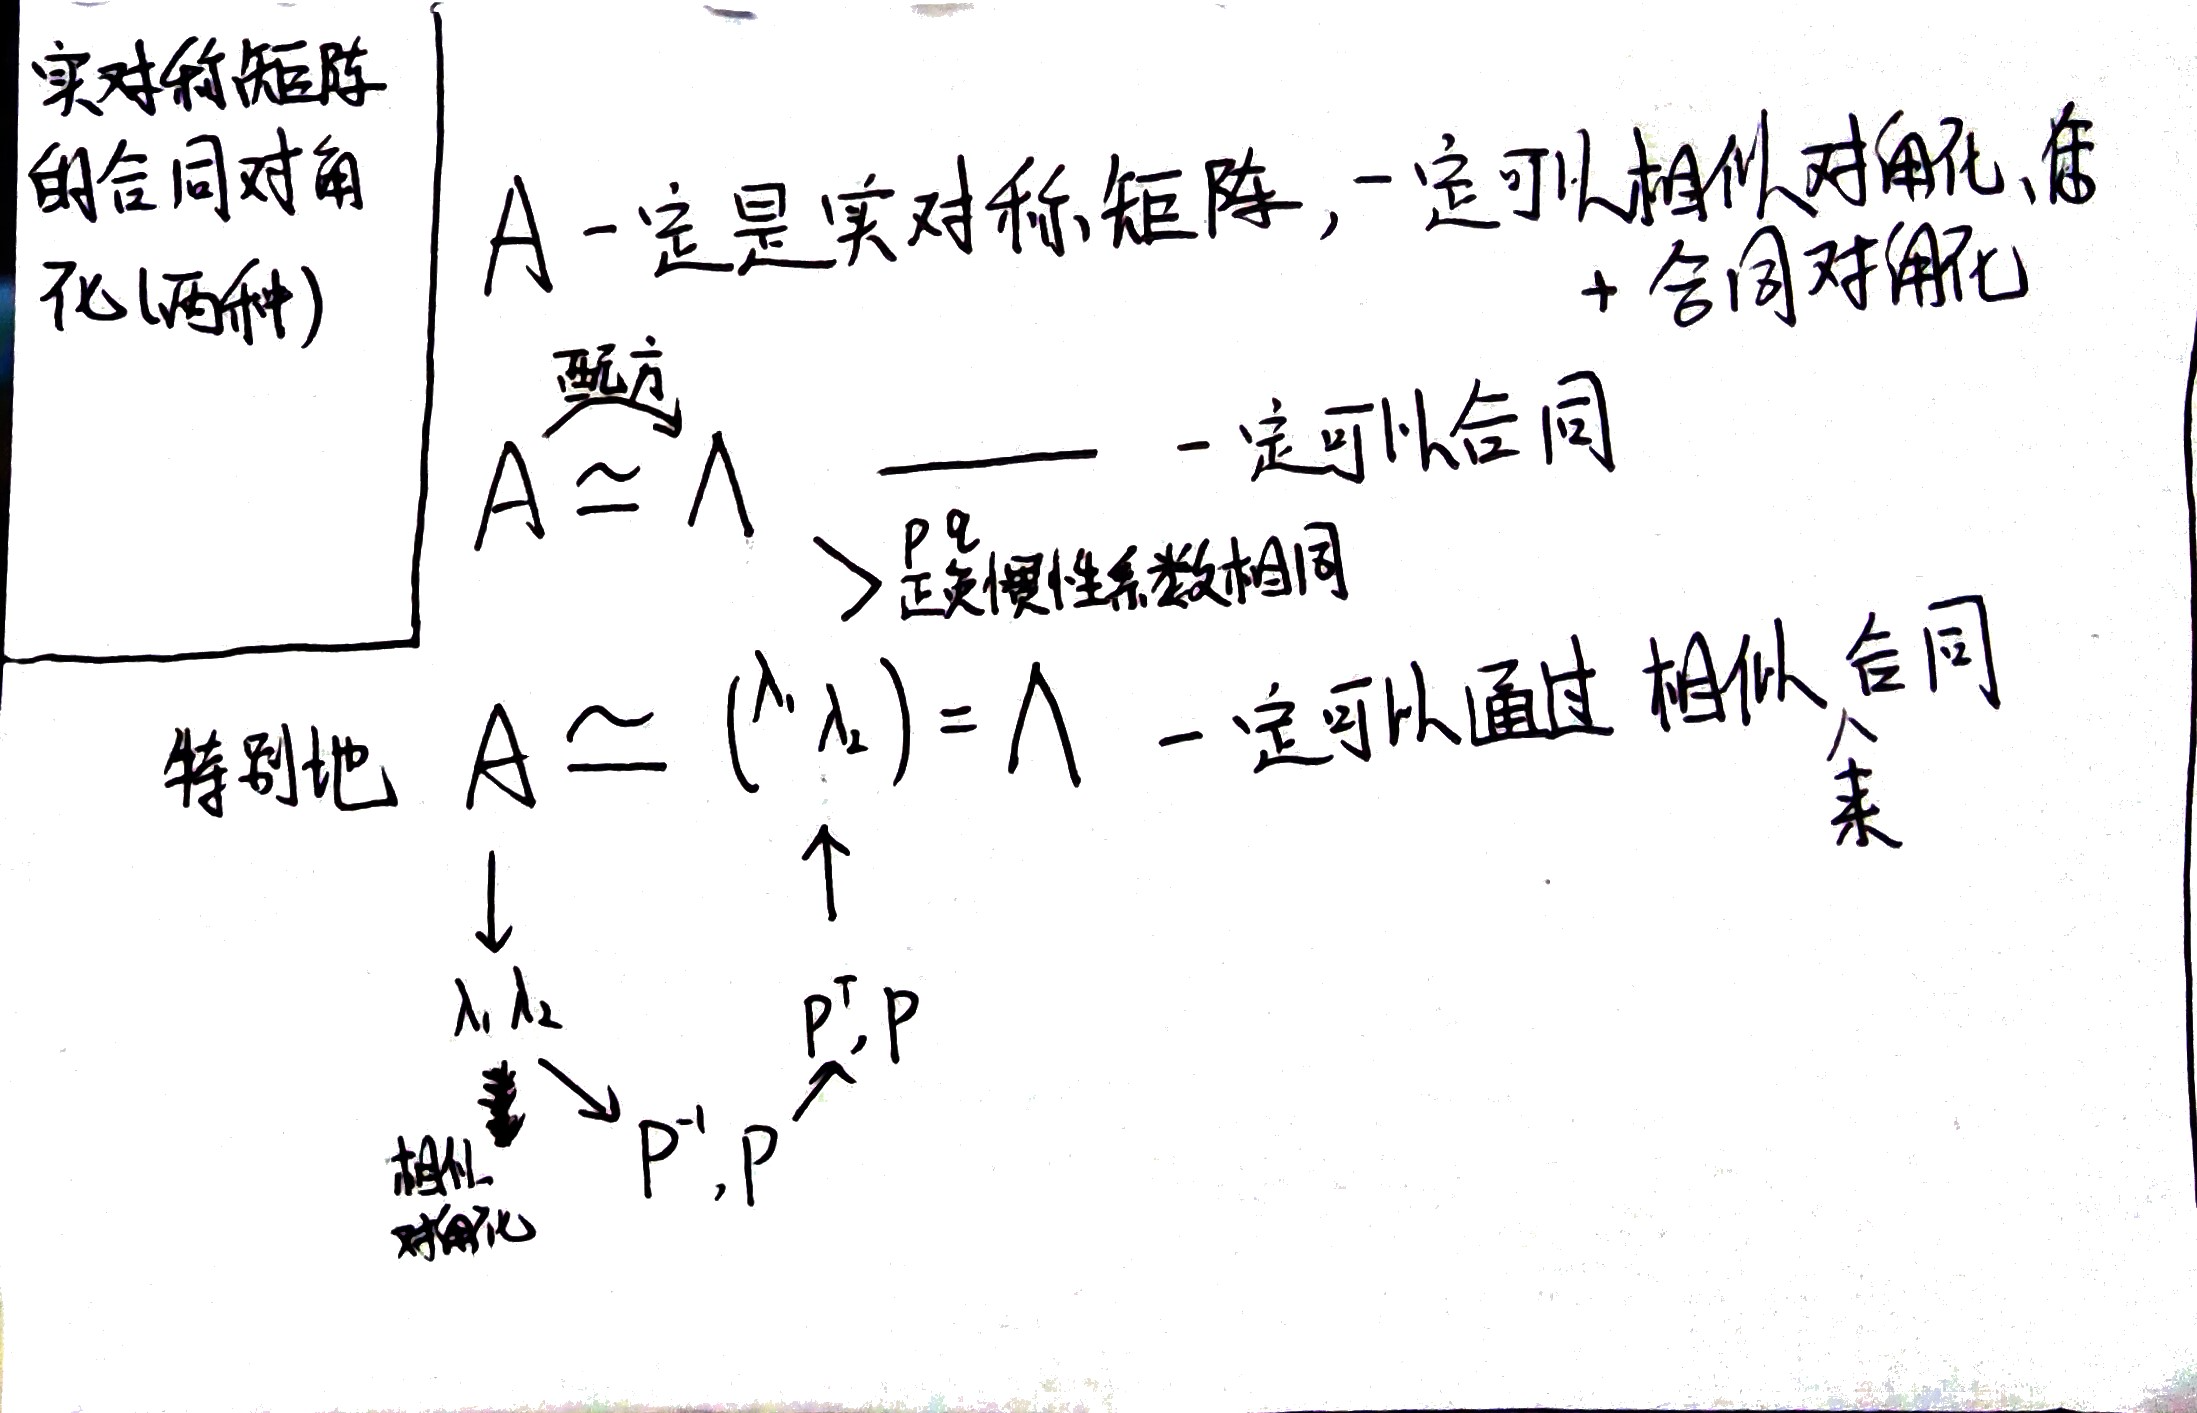 实对称矩阵
的合同对角
化(两种)
A 一定是实对称矩阵, 一定可以相似对角化、
+ 合同对角化
配方
A ≃ Λ —— 一定可以合同
p q
> 正负惯性系数相同
特别地 A ≃ (λ₁ λ₂) = Λ 一定可以通过 相似 合同
来
↓ ↑
λ₁ λ₂ Pᵀ, P
↘ P⁻¹, P ↗
相似
对角化